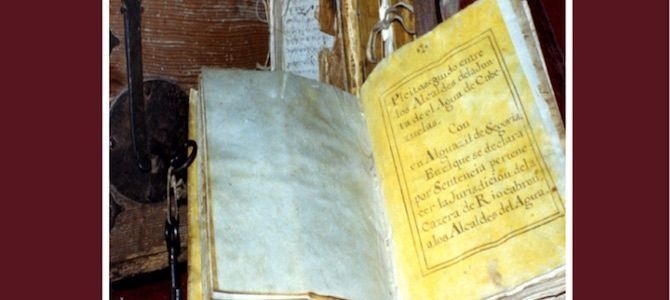 Pleito seguido entre
los Alcaldes de la Jun-
ta de el Agua de Cabe
zuelas.
Con
un Alguazil de Segovia,
En el que se declara
por Sentencia pertene-
cer la Jurisdicion de la
Cazera de Rio cabron,
a los Alcaldes del Agua.